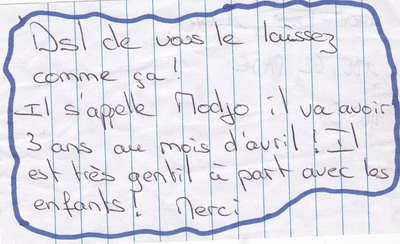 Dsl de vous le laissez
comme ça !
Il s'appelle Modjo il va avoir
3 ans au mois d'avril ! Il
est très gentil à part avec les
enfants ! Merci